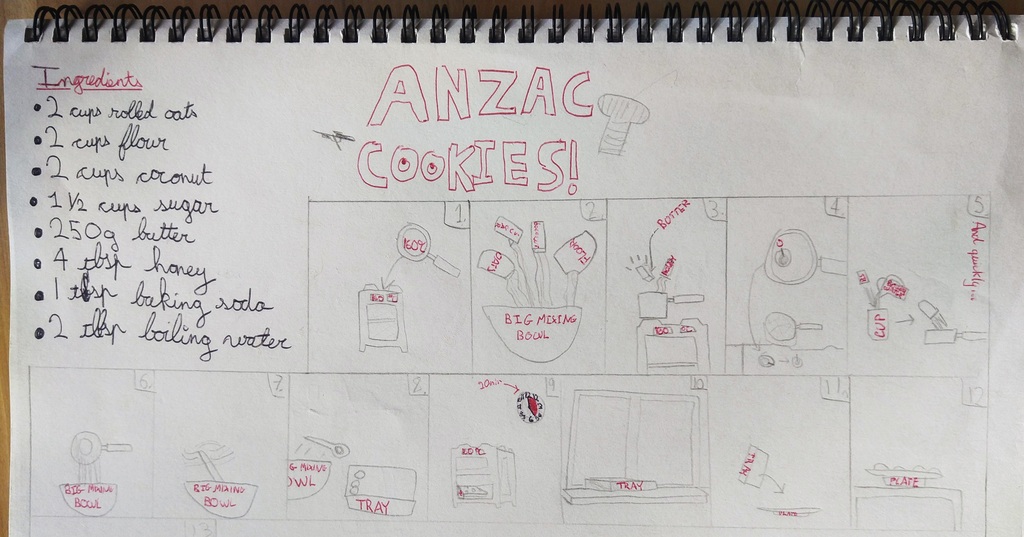 Ingredients
• 2 cups rolled oats
• 2 cups flour
• 2 cups coconut
• 1 1/2 cups sugar
• 250g butter
• 4 tbsp honey
• 1 tbsp baking soda
• 2 tbsp boiling water
ANZAC
COOKIES!
1.
160°C
2.
OATS
FLOUR
BIG MIXING
BOWL
3.
BUTTER
4
5
And quickly...
CUP
6.
BIG MIXING
BOWL
7.
BIG MIXING
BOWL
8.
G MIXING
OWL
TRAY
9
20min
10
TRAY
11.
TRAY
PLATE
12
PLATE
13